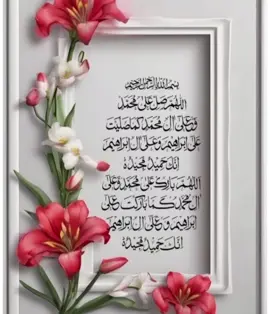 بسم الله الرحمن الرحيم
اللهم صل على محمد
وعلى آل محمد كما صليت
على إبراهيم وعلى آل إبراهيم
إنك حميد مجيد
اللهم بارك على محمد وعلى
آل محمد كما باركت على
إبراهيم وعلى آل إبراهيم
إنك حميد مجيد